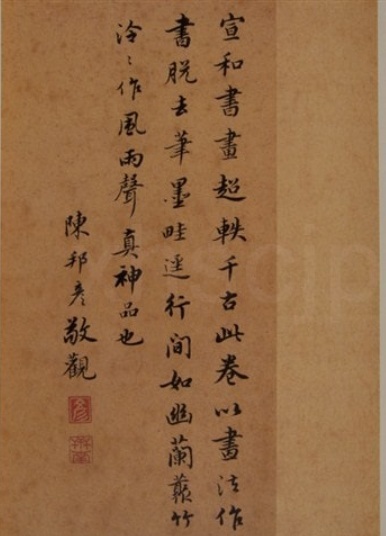 宣和書畫超軼千古此卷以畫法作
書脫去筆墨畦逕行間如幽蘭叢竹
泠〻作風雨聲真神品也
陳邦彥敬觀